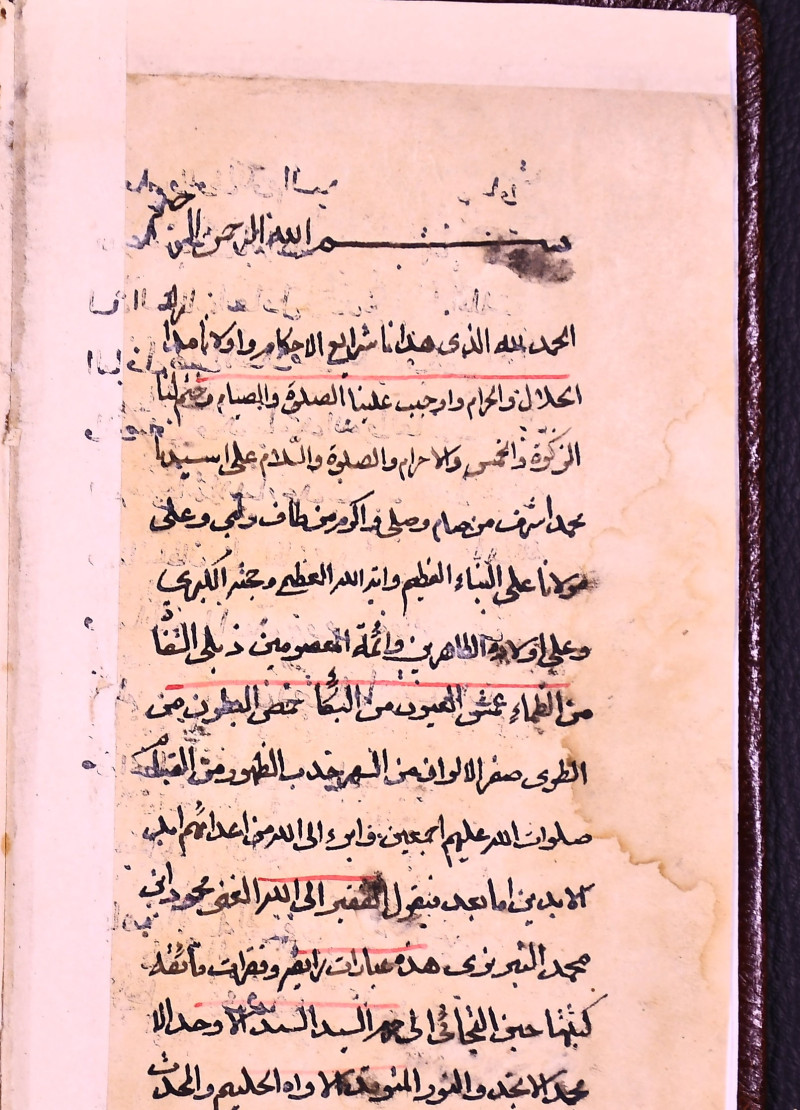 بسم الله الرحمن الرحيم
الحمد لله الذى هدانا شرايع الاحكام واولانا
الحلال والحرام واوجب علينا الصلوة والصيام
الزكوة والخمس والاحرام والصلوة والسلام على سيدنا
محمد اشرف من صام وصلى واكرم من طاف ولبى وعلى
مولانا على النباء العظيم واية الله العظمى وحجته الكبرى
وعلى اولاده الطاهرين وائمة المعصومين ذبلى الشفا
من الظماء عمش العيون من البكاء خمص البطون من
الطوى صفر الالوان من السهر حدب الظهور من القيام
صلوات الله عليهم اجمعين وابرء الى الله من اعدائهم ابد
الابدين اما بعد فيقول الفقير الى الله الغنى محمود ابن
محمد التبريزى هذه عبارات رايقة وفقرات فائقة
كتبتها حين التجائى الى السيد السند الاوحد الا
مجد الامجد والنور المتوقد الاواه الحليم والمحدث